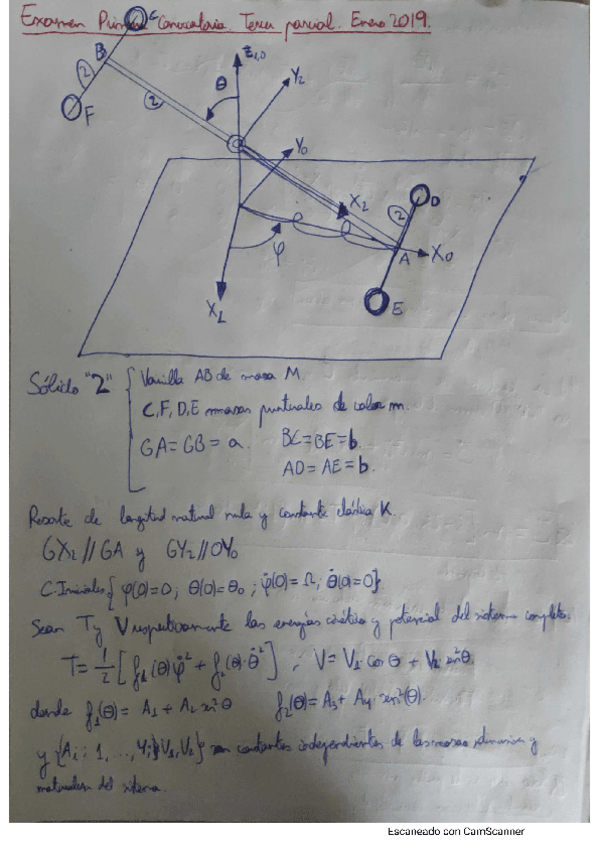 Examen Primera Convocatoria. Tercer parcial. Enero 2019.
C
B
2
F
θ
Z1,0
Y2
2
Y0
X2
2
D
φ
A
X0
E
X1
Sólido "2"
Varilla AB de masa M.
C, F, D, E masas puntuales de valor m.
GA = GB = a. BC = BE = b.
AD = AE = b.
Resorte de longitud natural nula y constante elástica K.
GX2 // GA y GY2 // OY0
C. Iniciales { φ(0)=0; θ(0)=θ0; φ̇(0)=Ω; θ̇(0)=0}
Sean T y V respectivamente las energías cinética y potencial del sistema completo.
T = 1/2 [f1(θ)φ̇² + f2(θ)·θ̇²] , V = V1 cos θ + V2 sin²θ
donde f1(θ) = A1 + A2 sin²θ f2(θ) = A3 + A4 · sen²(θ).
y {Ai : 1, ..., 4; V1, V2} son constantes independientes de las masas, dimensiones y
del sistema.
Escaneado con CamScanner